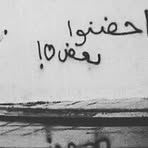 احضنوا
بعض!